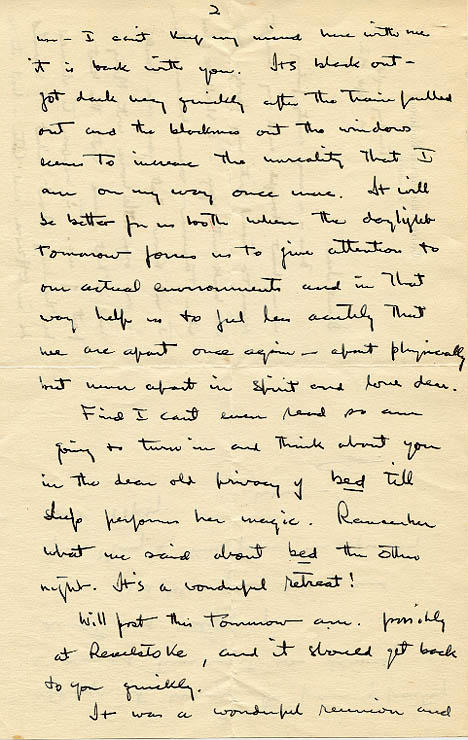 2
me - I can't keep my mind here with me
it is back with you. It's black out -
got dark very quickly after the train pulled
out and the blackness out the windows
seems to increase the unreality that I
am on my way once more. It will
be better for us both when the daylight
tomorrow forces us to give attention to
our actual environments and in that
way help us to feel less acutely that
we are apart once again - apart physically
but never apart in spirit and love dear.
Find I can't even read so am
going to turn in and think about you
in the dear old privacy of bed till
sleep performs her magic. Remember
what we said about bed the other
night. It's a wonderful retreat!
Will post this tomorrow a.m. possibly
at Revelstoke, and it should get back
to you quickly.
It was a wonderful reunion and